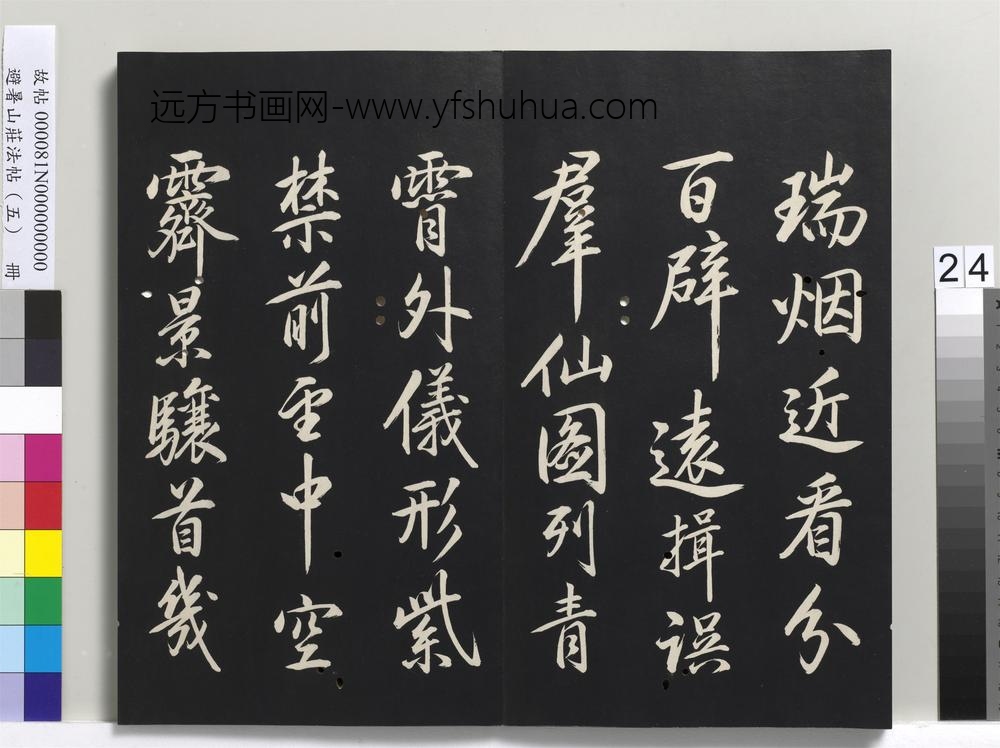 瑞烟近看分
百辟遠揖誤
羣仙圖列青
霄外儀形紫
禁前雲中空
霽景驤首幾
远方书画网-www.yfshuhua.com
故帖 000081N000000000
避暑山莊法帖（五） 冊
24